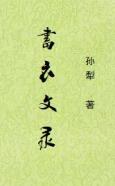 書衣文录
孙犁 著